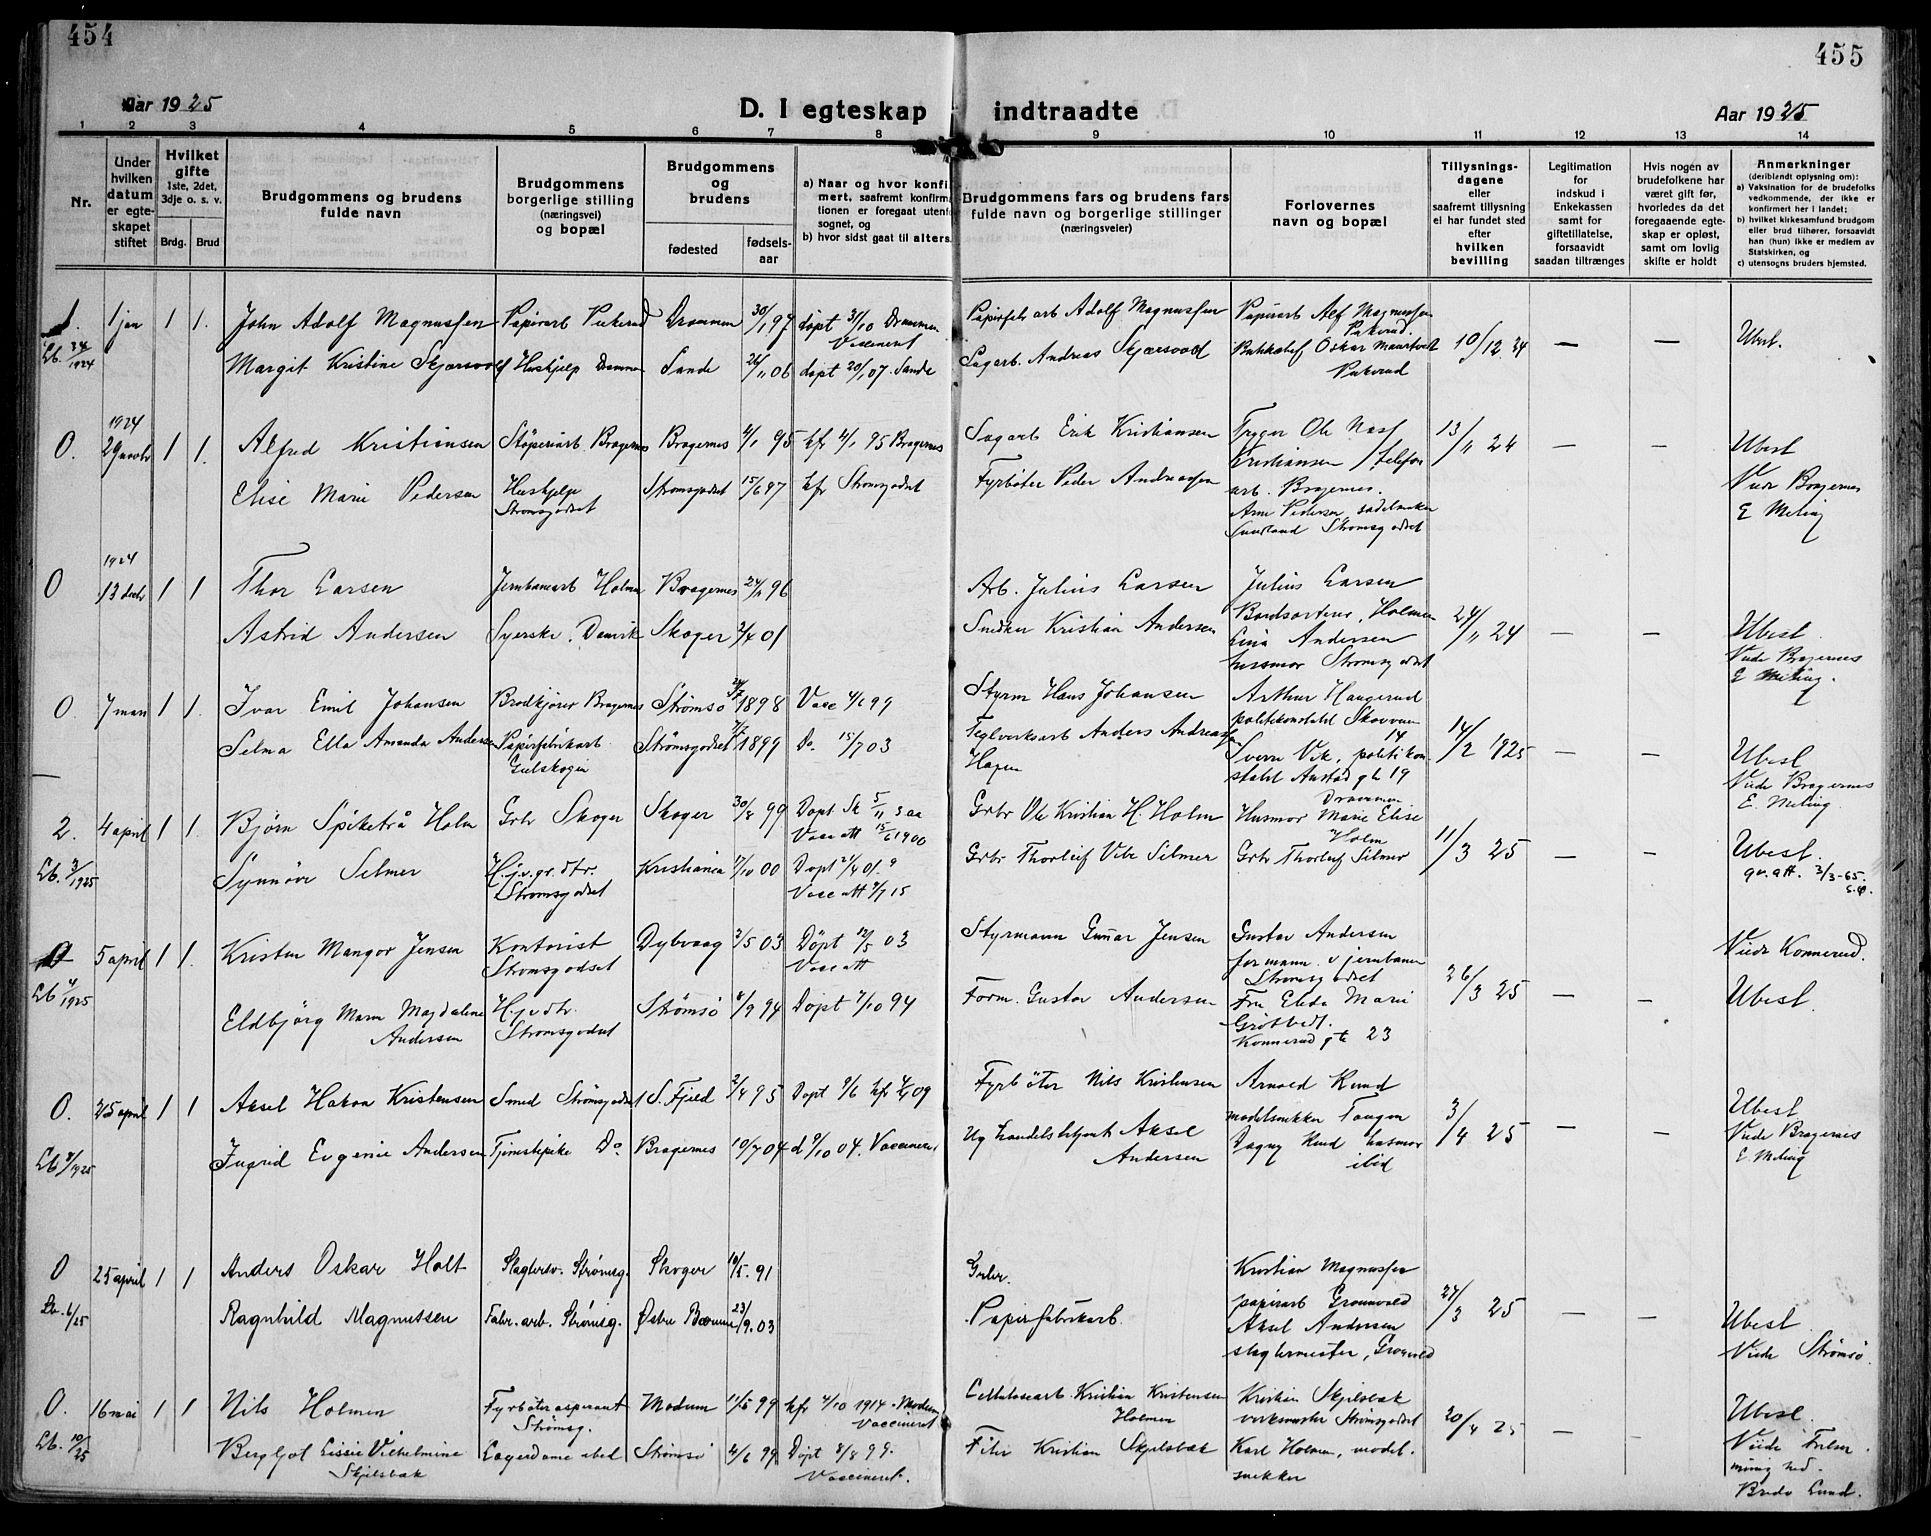 454
455
Aar 1925
D. I egteskap indtraadte
Aar 1925
1 2 3 4 5 6 7 8 9 10 11 12 13 14
Nr.
Under hvilken datum er egteskapet stiftet
Hvilket gifte 1ste, 2det, 3dje o. s. v.
Brdg. Brud
Brudgommens og brudens fulde navn
Brudgommens borgerlige stilling (næringsvei) og bopæl
Brudgommens og brudens
fødested
fødselsaar
a) Naar og hvor konfirmert, saafremt konfirmationen er foregaat utenfor sognet, og
b) hvor sidst gaat til alters.
Brudgommens fars og brudens fars fulde navn og borgerlige stillinger (næringsveier)
Forlovernes navn og bopæl
Tillysningsdagene eller saafremt tillysning ei har fundet sted efter hvilken bevilling
Legitimation for indskud i Enkekassen samt for giftetillatelse, forsaavidt saadan tiltrænges
Hvis nogen av brudefolkene har været gift før, hvorledes da det foregaaende egteskap er opløst, samt om lovlig skifte er holdt
Anmerkninger (deriblendt oplysning om):
a) Vaksination for de brudefolks vedkommende, der ikke er konfirmert her i landet;
b) hvilket kirkesamfund brudgom eller brud tilhører, forsaavidt han (hun) ikke er medlem av Statskirken, og
c) utensogns bruders hjemsted.
1. 1 jan 1 1. John Adolf Magnussen Papirarb Pukerud Drammen 30/1 97 døpt 31/10 Drammen Vaccinert
Papirfabr arb Adolf Magnussen Papirarb Alf Magnussen Pukerud. 10/12 24 — — Ubesl.
Margit Kristine Skjærsvold Huskjelp Drammen Sande 26/11 06 døpt 20/1 07. Sande
Sagarb. Andreas Skjærsvold Oskar Pukerud
1924
0. 29 novbr 1 1. Alfred Kristiansen Støperiarb Bragernes Bragernes 4/1 95 kfr 4/1 95 Bragernes
Sagarb Erik Kristiansen Trygve Ole Kristiansen / telefonarb. Bragernes. 13/11 24 — — Ubesl
Elise Marie Pedersen Huskjelp Strømsgodset Strømsgodset 15/6 97 kfr Strømsgodset
Fyrbøter Peder Andreassen Arne Pedersen sadelmaker Strømsgodset
Viede Bragernes
E Meling
1924
0 13 decbr 1 1 Thor Larsen Jernbanearb Holmen Bragernes 24/11 96
Arb. Julius Larsen Julius Larsen Bordsorterer, Holmen 24/11 24 — — Ubesl.
Astrid Andersen Syerske, Danvik Skoger 2/4 01
Snedker Kristian Andersen Lina Andersen husmor Strømsgodset
Viede Bragernes
E Meling.
0. 7 mars 1 1. Ivar Emil Johansen Brødkjører Bragernes Strømsø 1898 Vacc 4/6 99
Styrm Hans Johansen Arthur Haugerud politikonstabel 14 14/2 1925 Ubesl
Selma Ella Amanda Andersen Papirfabrikarb Gulskogen Strømsgodset 1899 Do 15/7 03
Teglverksarb Anders Andreassen Hagen Sverre Vik, politikonstabel Austad gt 19 Drammen
Viede Bragernes
E. Meling.
2. 4 april 1 1. Bjørn Spiketrå Holm Grbr Skoger Skoger 30/8 99 Døpt Sk 5/11 s aa Vacc att 15/6 1900
Grbr Ole Kristian H. Holm Husmor Marie Elise Holm 11/3 25 — — Ubesl.
Lb. 3/1925 Synnøve Selmer H.j.v.gr.dtr. Strømsgodset Kristiania 7/10 00 Døpt 21/4 01. Vacc att 7/7 15
Grbr Thorleif Vibe Selmer Grbr Thorleif Selmer
gv.att. 3/3-65.
5 april 1 1. Kristen Mangor Jensen Kontorist Strømsgodset Dybvaag 2/5 03 Døpt 12/5 03 Vacc att
Styrmann Gunnar Jensen Gustav Andersen formann v jernbanen Strømsgodset 26/3 25 — — Viede Konnerud.
Lb 4/1925 Eldbjørg Marn Magdalene Andersen H.j.v dtr. Strømsgodset Strømsø 8/9 94 Døpt 7/10 94
Form. Gustav Andersen Fru Elida Marie Konnerud gte 23 Ubesl.
0. 25 april 1 1 Aksel Hakon Kristensen Smed Strømsgodset S. Fjeld 2/4 95 Døpt 9/6 kfr 09
Fyrbøter Nils Kristensen Arnold Rund modelsnekker Tangen 3/4 25 — — Ubesl
Ingrid Evgenie Andersen Tjenestepike Do Bragernes 10/7 04 d 9/10 04. Vaccinert
Ug handelsbetjent Aksel Andersen Dagny Rund husmor ibid
Viede Bragernes
E Meling
0 25 april 1 1 Anders Oskar Holt Slagtersv. Strømsg. Skoger 10/5. 91
Grbr. Kristian Magnussen papirarb Grønvold 27/3 25 — — Ubesl.
Lb. 6/25 Ragnhild Magnussen Fabr. arb. Strømsg. Østre Bærum 23/9. 03
Papirfabrikarb. Aksel Andersen slagtermester, Grønvold
Viede Strømsø
0. 16 mai 1 1 Nils Holmen Fyrbøteraspirant Strømsg. Modum 11/5 99 kfr 4/10 1914 - Modum Vaccineret
Cellulosearb. Kristian Kristensen Holmen Kristian Skjelsbæk verksmester Strømsgodset 20/4 25 — — Ubesl.
Lb. 10/25 Bergljot Lissie Vilhelmine Skjelsbæk Lagerdame ibid Strømsø 4/6 99 Døpt 8/8 99. Vaccineret.
Filer Kristian Skjelsbæk Karl Holmen, modelsnekker
Viede
Bredo Lund.